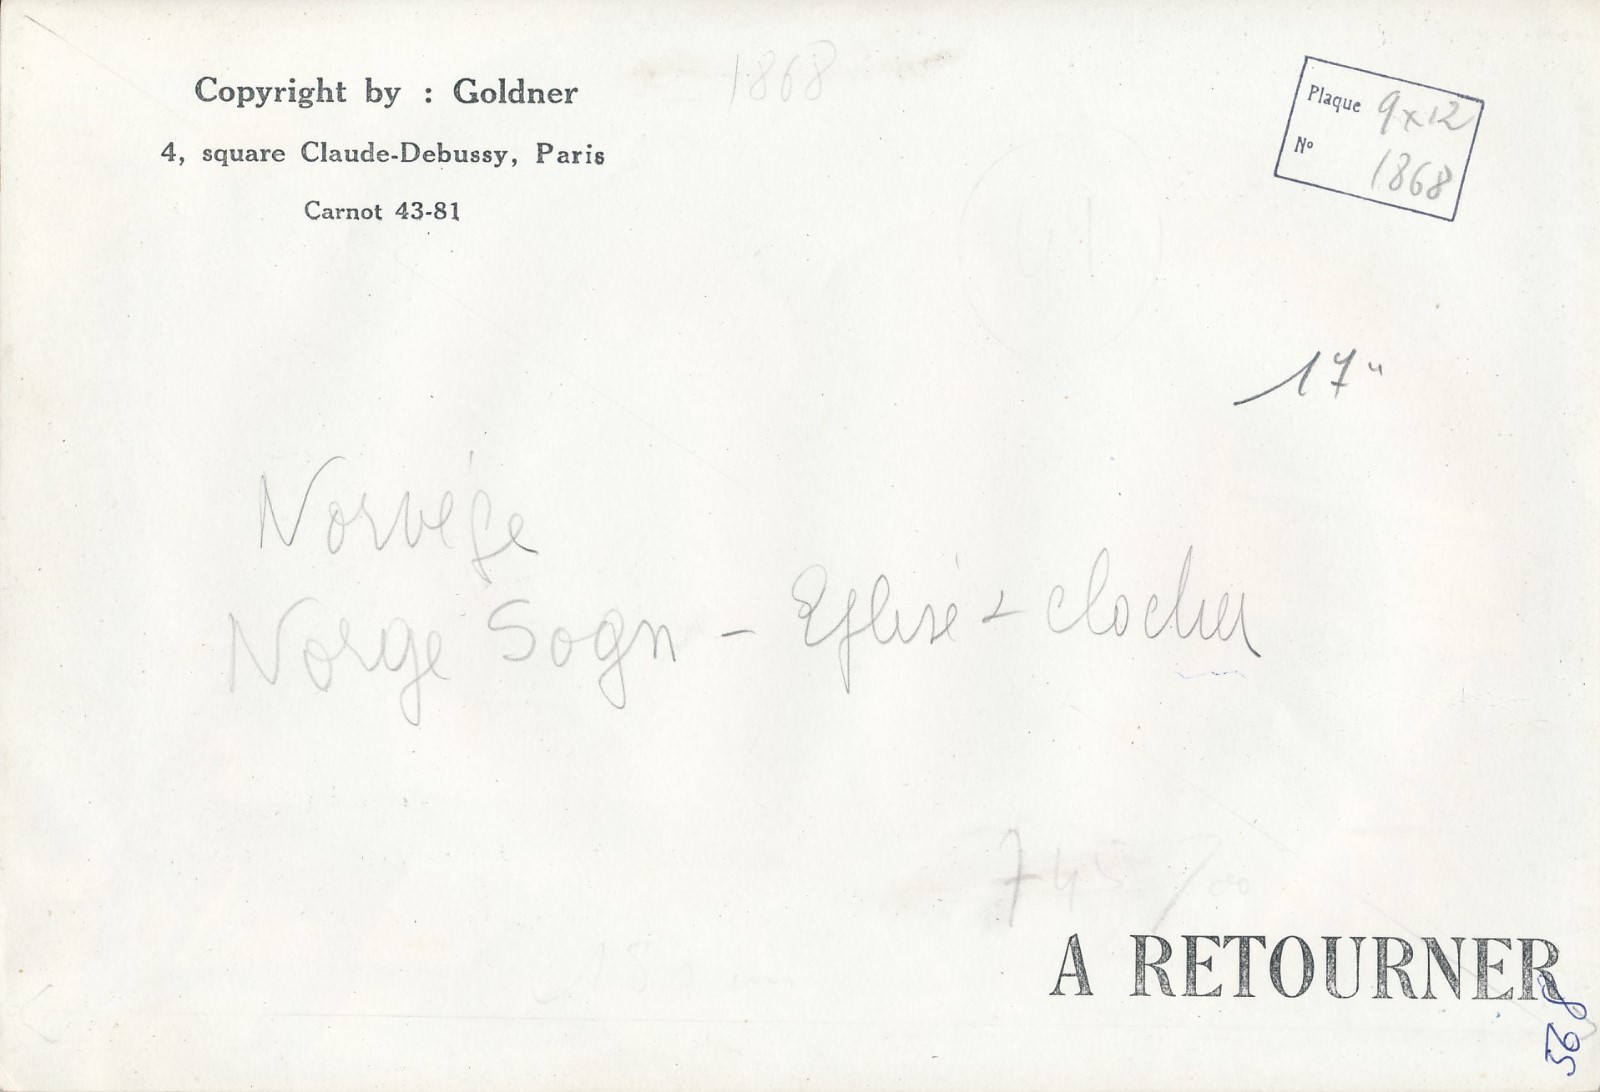 Copyright by : Goldner
4, square Claude-Debussy, Paris
Carnot 43-81
1868
Plaque 9x12
Nº 1868
17"
Norvége
Norge Sogn - Eglise + clocher
A RETOURNER